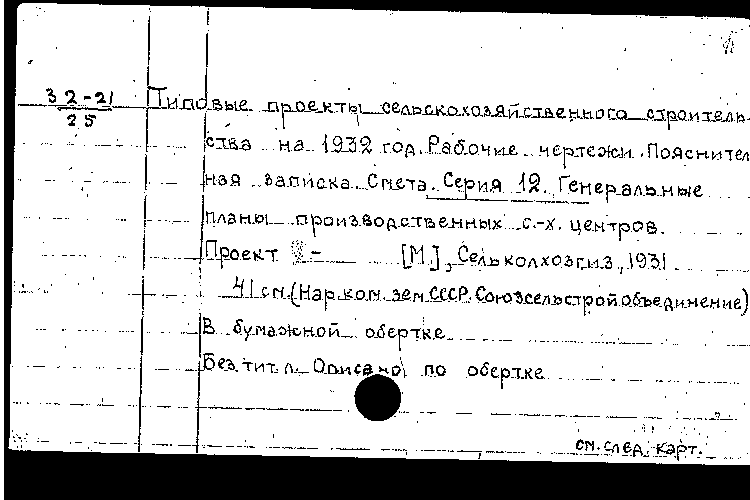 32-21
25
Типовые проекты сельскохозяйственного строитель-
ства на 1932 год. Рабочие чертежи. Пояснител
ная записка. Смета. Серия 12. Генеральные
планы производственных с.-х. центров.
Проект - [М.], Сельколхозгиз, 1931.
41 см. (Нар. ком. зем. СССР. Союзсельстройобъединение)
В бумажной обертке
Без тит. л. Описано по обертке
см. след. карт.